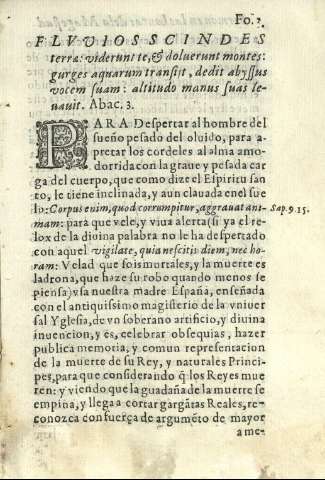 Fo. 2.
FLVVIOS SCINDES
terra: viderunt te, & doluerunt montes:
gurges aquarum transiit, dedit abyssus
vocem suam: altitudo manus suas le-
uauit. Abac. 3.
PARA Despertar al hombre del
sueño pesado del oluido, para a-
pretar los cordeles al alma amo-
dorrida con la graue y pesada car
ga del cuerpo, que como dize el Espiritu san
to, le tiene inclinada, y aun clauada en el sue
lo: Corpus enim, quod corrumpitur, aggrauat ani- Sap. 9. 15.
mam: para que vele, y viua alerta (si ya el re-
lox de la diuina palabra no le ha despertado
con aquel vigilate, quia nescitis diem, nec ho-
ram: Velad que sois mortales, y la muerte es
ladrona, que haze su robo quando menos se
piensa) vsa nuestra madre España, enseñada
con el antiquissimo magisterio de la vniuer
sal Yglesia, de vn soberano artificio, y diuina
inuencion, y es, celebrar obsequias, hazer
publica memoria, y comun representacion
de la muerte de su Rey, y naturales Princi-
pes, para que considerando q̃ los Reyes mue
ren: y viendo que la guadaña de la muerte se
empina, y llega a cortar gargãtas Reales, re-
conozca con fuerça de argumẽto de mayor
a me-